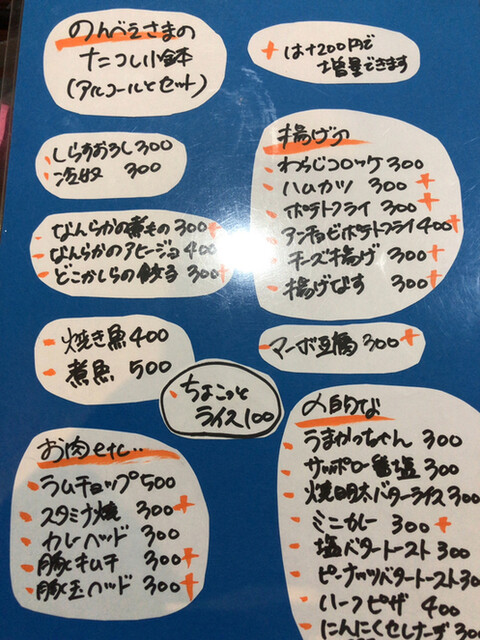 のんべえさまの
ナニコレ小鉢
(アルコールとセット)
+は+200円で
増量できます
しらすおろし 300
冷奴 300
なんらかの煮もの 300+
なんらかのアヒージョ 400
どこかしらの餃子 300+
焼き魚 400
煮魚 500
ちょこっと
ライス 100
お肉etc...
ラムチョップ 500
スタミナ焼 300+
カレーヘッド 300
豚キムチ 300+
豚玉ヘッド 300+
揚げもの
わらじコロッケ 300
ハムカツ 300+
ポテトフライ 300+
アンチョビポテトフライ 400+
チーズ揚げ 300+
揚げなす 300+
マーボ豆腐 300+
〆的な
うまかっちゃん 300
サッポロ一番塩 300
焼明太バターライス 300
ミニカレー 300+
塩バタートースト 300
ピーナッツバタートースト 300
ハーフピザ 400
にんにくセレナーデ 300